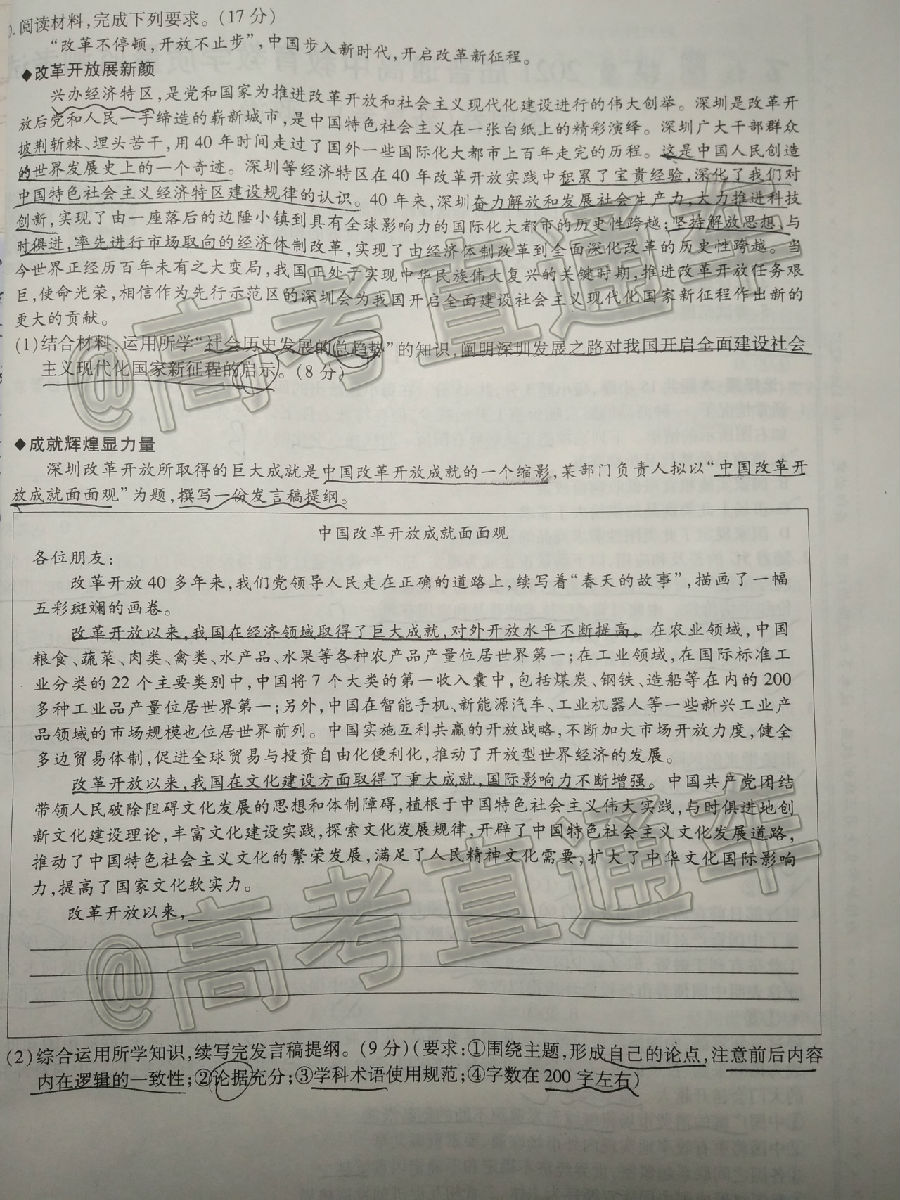 0.阅读材料,完成下列要求。(17分)
“改革不停顿,开放不止步”,中国步入新时代,开启改革新征程。
◆改革开放展新颜
兴办经济特区,是党和国家为推进改革开放和社会主义现代化建设进行的伟大创举。深圳是改革开
放后党和人民一手缔造的崭新城市,是中国特色社会主义在一张白纸上的精彩演绎。深圳广大干部群众
披荆斩棘、埋头苦干,用40年时间走过了国外一些国际化大都市上百年走完的历程。这是中国人民创造
的世界发展史上的一个奇迹。深圳等经济特区在40年改革开放实践中积累了宝贵经验,深化了我们对
中国特色社会主义经济特区建设规律的认识。40年来,深圳奋力解放和发展社会生产力,大力推进科技
创新,实现了由一座落后的边陲小镇到具有全球影响力的国际化大都市的历史性跨越;坚持解放思想、与
时俱进,率先进行市场取向的经济体制改革,实现了由经济体制改革到全面深化改革的历史性跨越。当
今世界正经历百年未有之大变局,我国正处于实现中华民族伟大复兴的关键时期,推进改革开放任务艰
巨,使命光荣,相信作为先行示范区的深圳会为我国开启全面建设社会主义现代化国家新征程作出新的
更大的贡献。
(1)结合材料,运用所学“社会历史发展的总趋势”的知识,阐明深圳发展之路对我国开启全面建设社会
主义现代化国家新征程的启示。(8分)
◆成就辉煌显力量
深圳改革开放所取得的巨大成就是中国改革开放成就的一个缩影,某部门负责人拟以“中国改革开
放成就面面观”为题,撰写一份发言稿提纲。
中国改革开放成就面面观
各位朋友:
改革开放40多年来,我们党领导人民走在正确的道路上,续写着“春天的故事”,描画了一幅
五彩斑斓的画卷。
改革开放以来,我国在经济领域取得了巨大成就,对外开放水平不断提高。在农业领域,中国
粮食、蔬菜、肉类、禽类、水产品、水果等各种农产品产量位居世界第一;在工业领域,在国际标准工
业分类的22个主要类别中,中国将7个大类的第一收入囊中,包括煤炭、钢铁、造船等在内的200
多种工业品产量位居世界第一;另外,中国在智能手机、新能源汽车、工业机器人等一些新兴工业产
品领域的市场规模也位居世界前列。中国实施互利共赢的开放战略,不断加大市场开放力度,健全
多边贸易体制,促进全球贸易与投资自由化便利化,推动了开放型世界经济的发展。
改革开放以来,我国在文化建设方面取得了重大成就,国际影响力不断增强。中国共产党团结
带领人民破除阻碍文化发展的思想和体制障碍,植根于中国特色社会主义伟大实践,与时俱进地创
新文化建设理论,丰富文化建设实践,探索文化发展规律,开辟了中国特色社会主义文化发展道路,
推动了中国特色社会主义文化的繁荣发展,满足了人民精神文化需要,扩大了中华文化国际影响
力,提高了国家文化软实力。
改革开放以来,
(2)综合运用所学知识,续写完发言稿提纲。(9分)(要求:①围绕主题,形成自己的论点,注意前后内容
内在逻辑的一致性;②论据充分;③学科术语使用规范;④字数在200字左右)
@高考直通车
@高考直通车